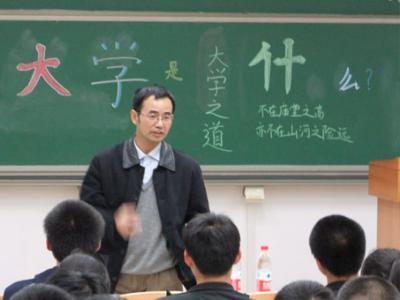 大学是什么?
大学之道
不在庙堂之高
亦不在山河之险远